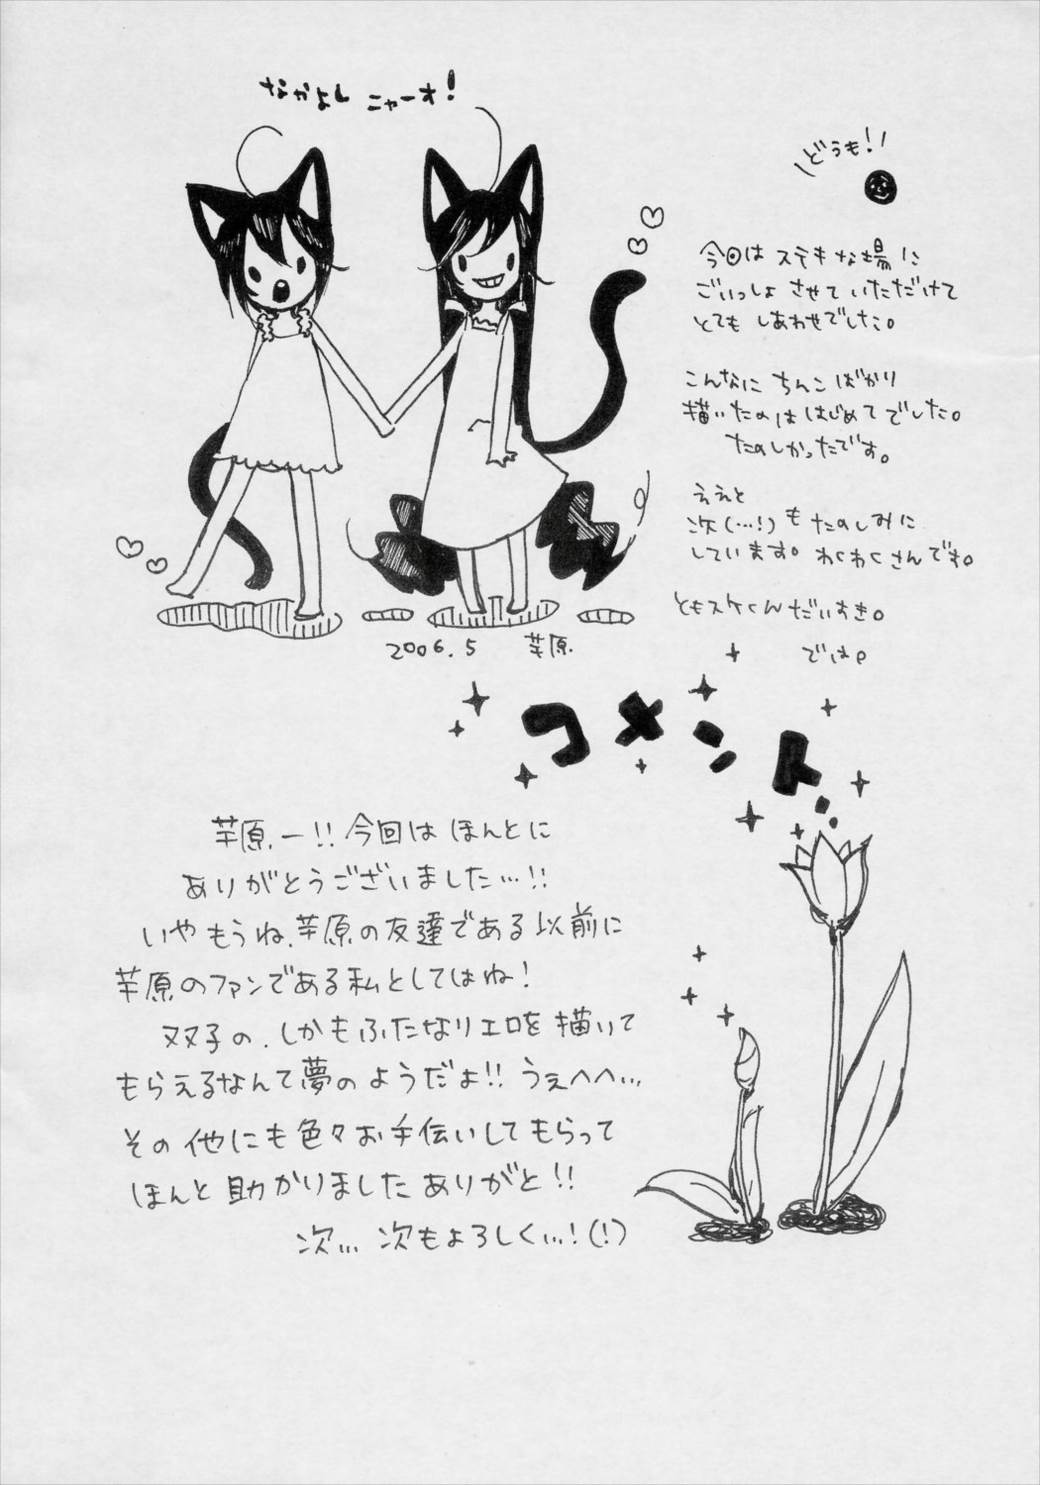 なかよし ニャーオ!
どうも!
今回は ステキな場に
ごいっしょ させて いただけて
とても しあわせでした。
こんなに ちんこ ばかり
描いたのは はじめて でした。
たのしかったです。
ええと
次(…!)も たのしみに
しています。 わくわく さん です。
ともスケくん だいすき。
では。
2006.5 芋原
コメント
芋原ー!! 今回は ほんとに
ありがとうございました…!!
いや もうね、芋原の友達である 以前に
芋原のファンである私としてはね!
双子の、しかもふたなりエロを描いて
もらえるなんて夢のようだよ!! うぇへへ…
その他にも色々お手伝いしてもらって
ほんと助かりましたありがと!!
次… 次もよろしく…!(!)